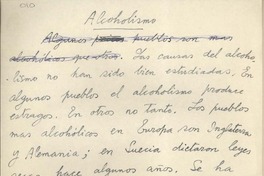 Alcoholismo
Algunos pueblos son mas
alcohólicos que otros. Las causas del alcoho-
lismo no han sido bien estudiadas. En
algunos pueblos el alcoholismo produce
estragos. En otros no tanto. Los pueblos
mas alcohólicos en Europa son Inglaterra
y Alemania; en Suecia dictaron leyes
hace algunos años. Se ha